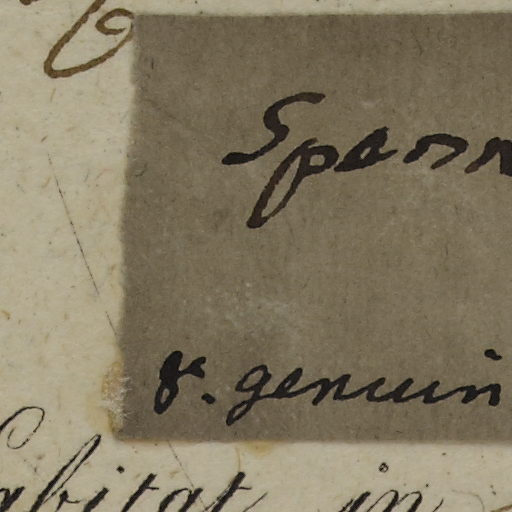 Spenn
γ. genuin
habitat in